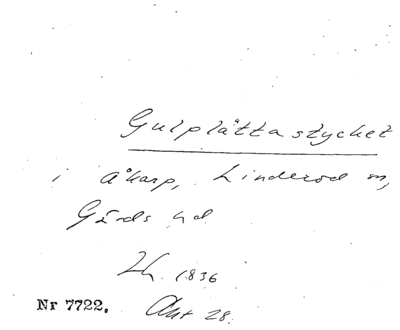 Gulplåttastycket
i Åkarp, Linderöd sn,
Gärds hd
Lh. 1836
Nr 7722. Akt 28.